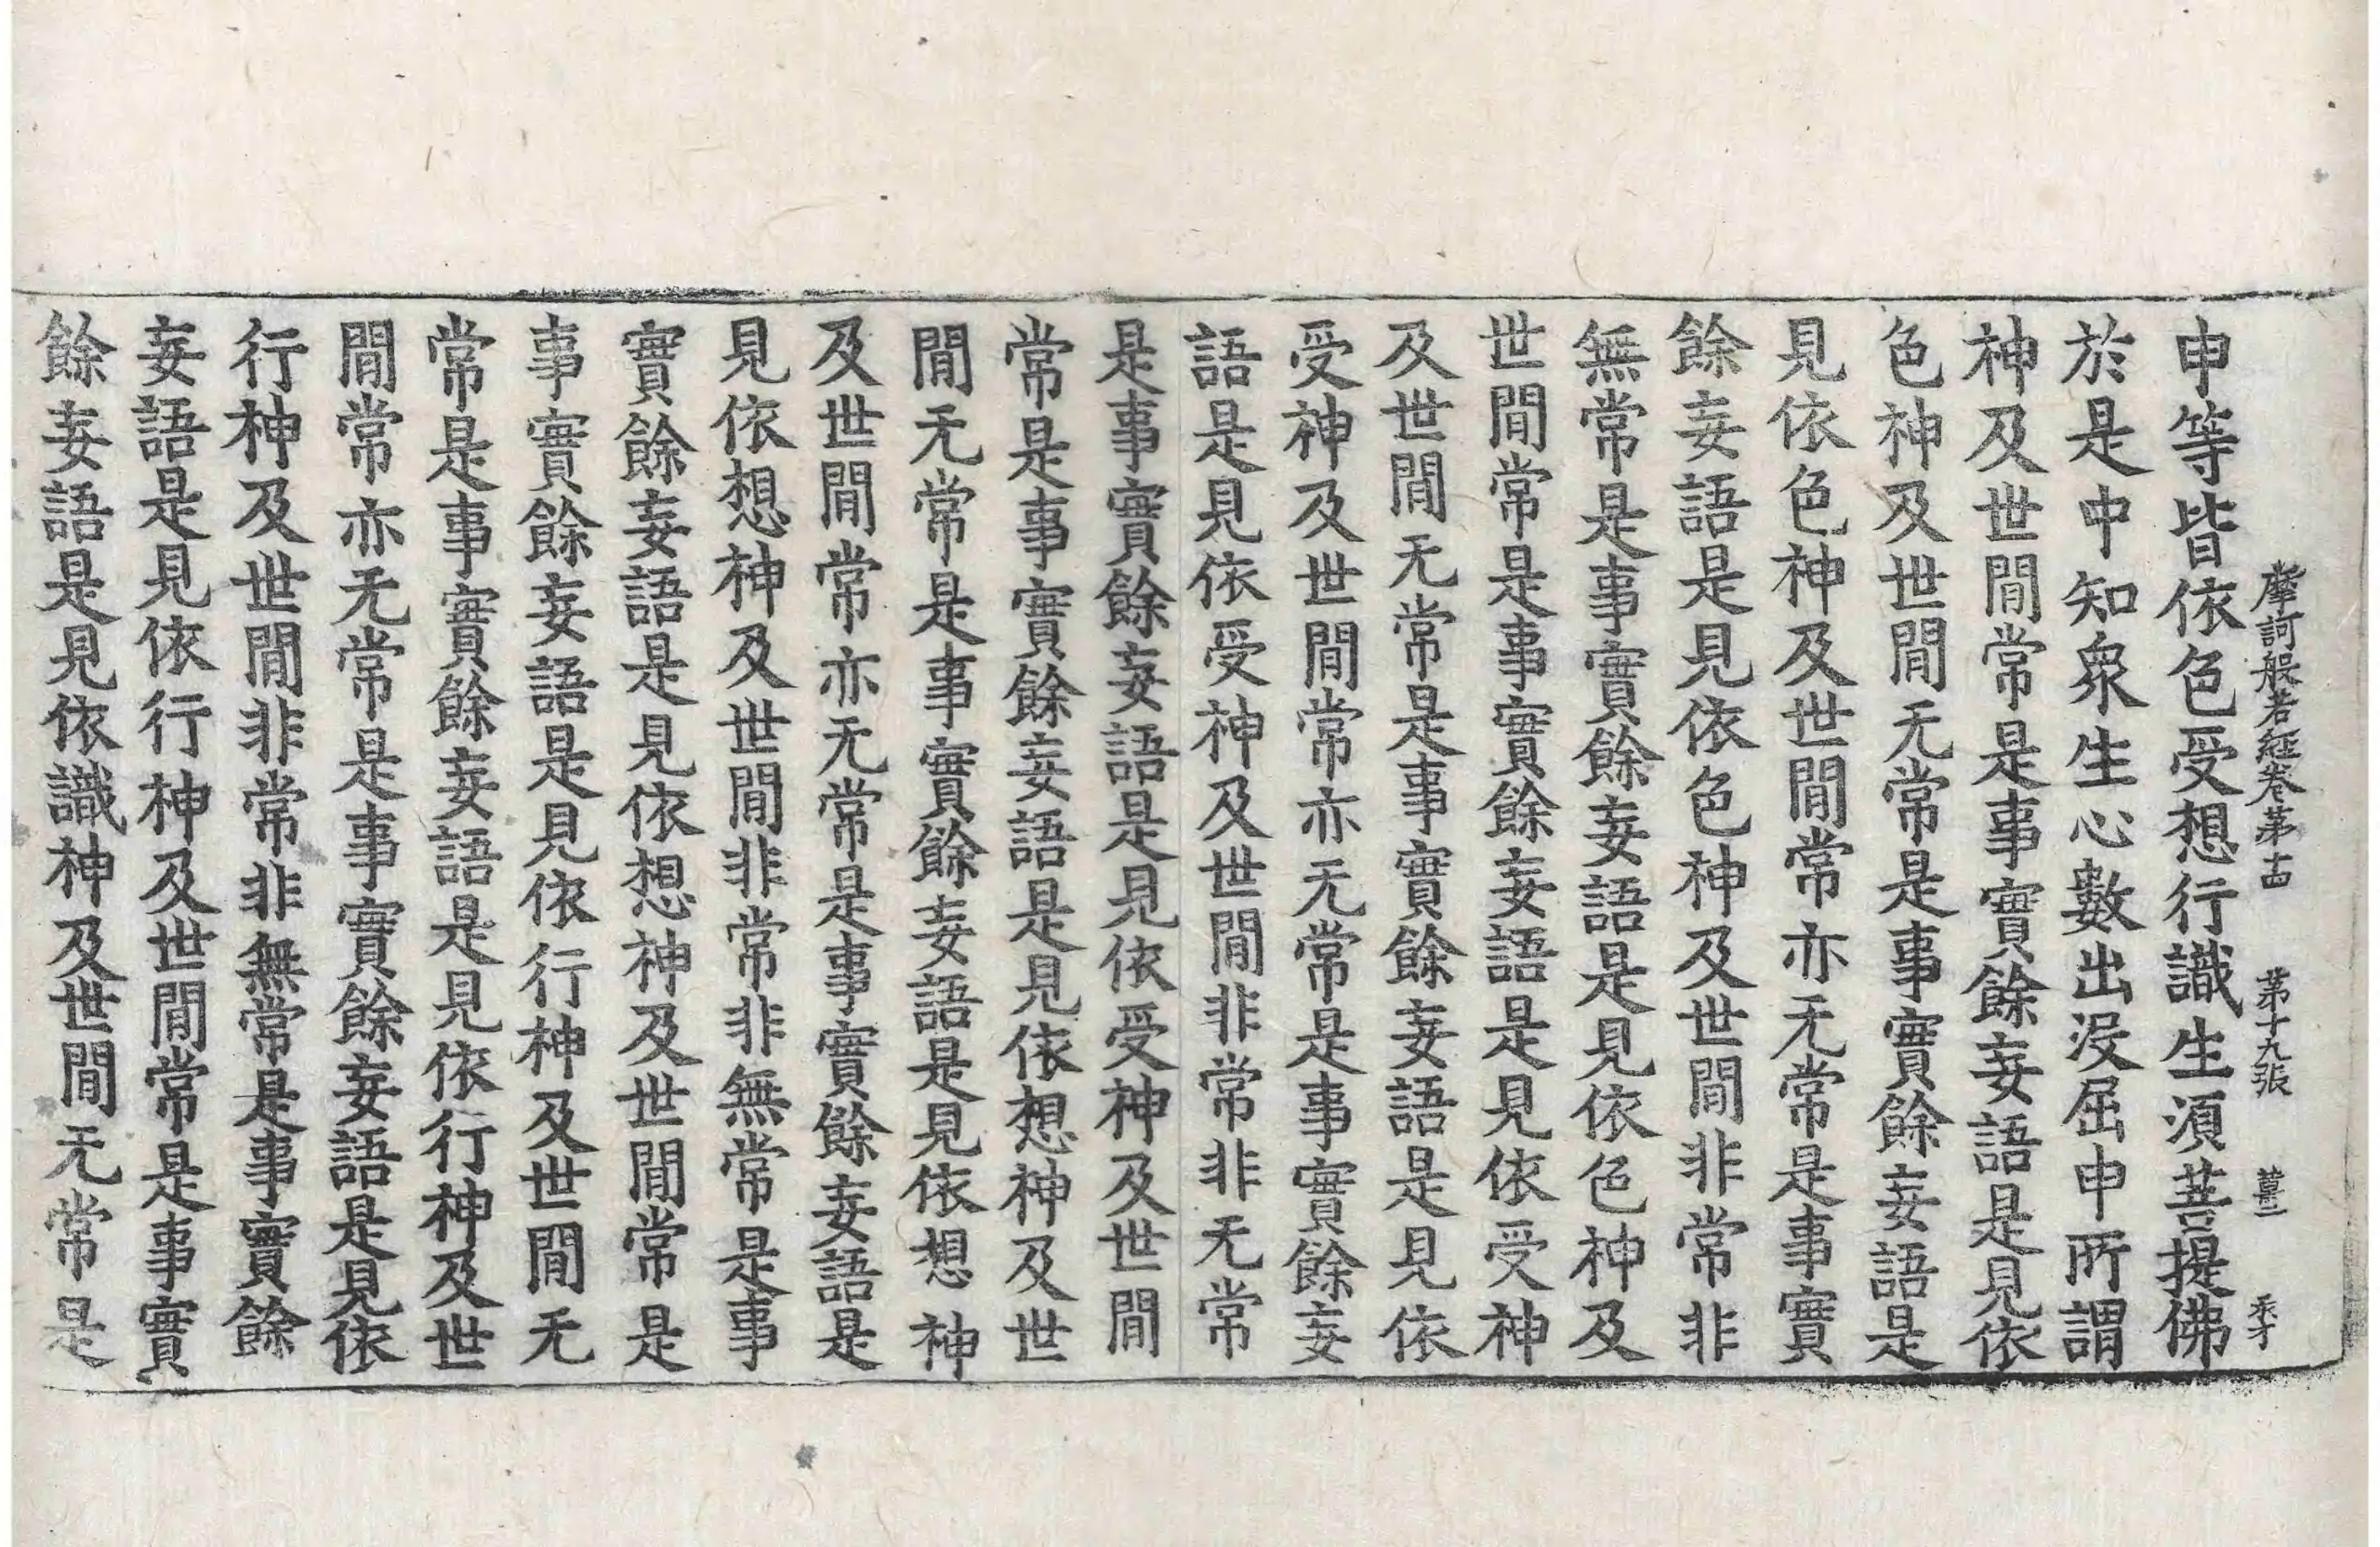 摩訶般若經卷第十四 第十九張 薑三 禾才
申等皆依色受想行識生湏菩提佛
於是中知衆生心數出没屈申所謂
神及世閒常是事實餘妄語是見依
色神及世閒无常是事實餘妄語是
見依色神及世閒常亦无常是事實
餘妄語是見依色神及世閒非常非
無常是事實餘妄語是見依色神及
世閒常是事實餘妄語是見依受神
及世閒无常是事實餘妄語是見依
受神及世閒常亦无常是事實餘妄
語是見依受神及世閒非常非无常
是事實餘妄語是見依受神及世閒
常是事實餘妄語是見依想神及世
閒无常是事實餘妄語是見依想神
及世閒常亦无常是事實餘妄語是
見依想神及世閒非常非無常是事
實餘妄語是見依想神及世閒常是
事實餘妄語是見依行神及世閒无
常是事實餘妄語是見依行神及世
閒常亦无常是事實餘妄語是見依
行神及世閒非常非無常是事實餘
妄語是見依行神及世閒常是事實
餘妄語是見依識神及世閒无常是